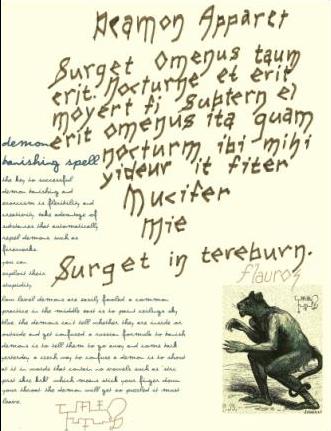 Deamon Apparet
Surget omenus taum
erit. Nocturne et erit
movert fi Subtern el
erit omenus ita quam
nocturm ibi-mihi
yideur it fiter
Mucifer
Mie
Surget in tereburn.
demon
banishing spell
the key to successful
demon banishing and
exorcism is flexibility and
creativity. take advantage of
substances that automatically
repel demons such as
fireworks.
you can
exploit their
stupidity.
low level demons are easily fooled a common
practice in the middle east is to paint ceilings sky
blue the demons can't tell whether they are inside or
outside and get confused a russian formula to banish
demons is to tell them to go away and come back
yesterday. a czech way to confuse a demon is to shout
at it in words that contain no vowels such as 'strc
prst skrz krk' which means stick your finger down
your throat the demon will get so puzzled it must
leave.
flauros